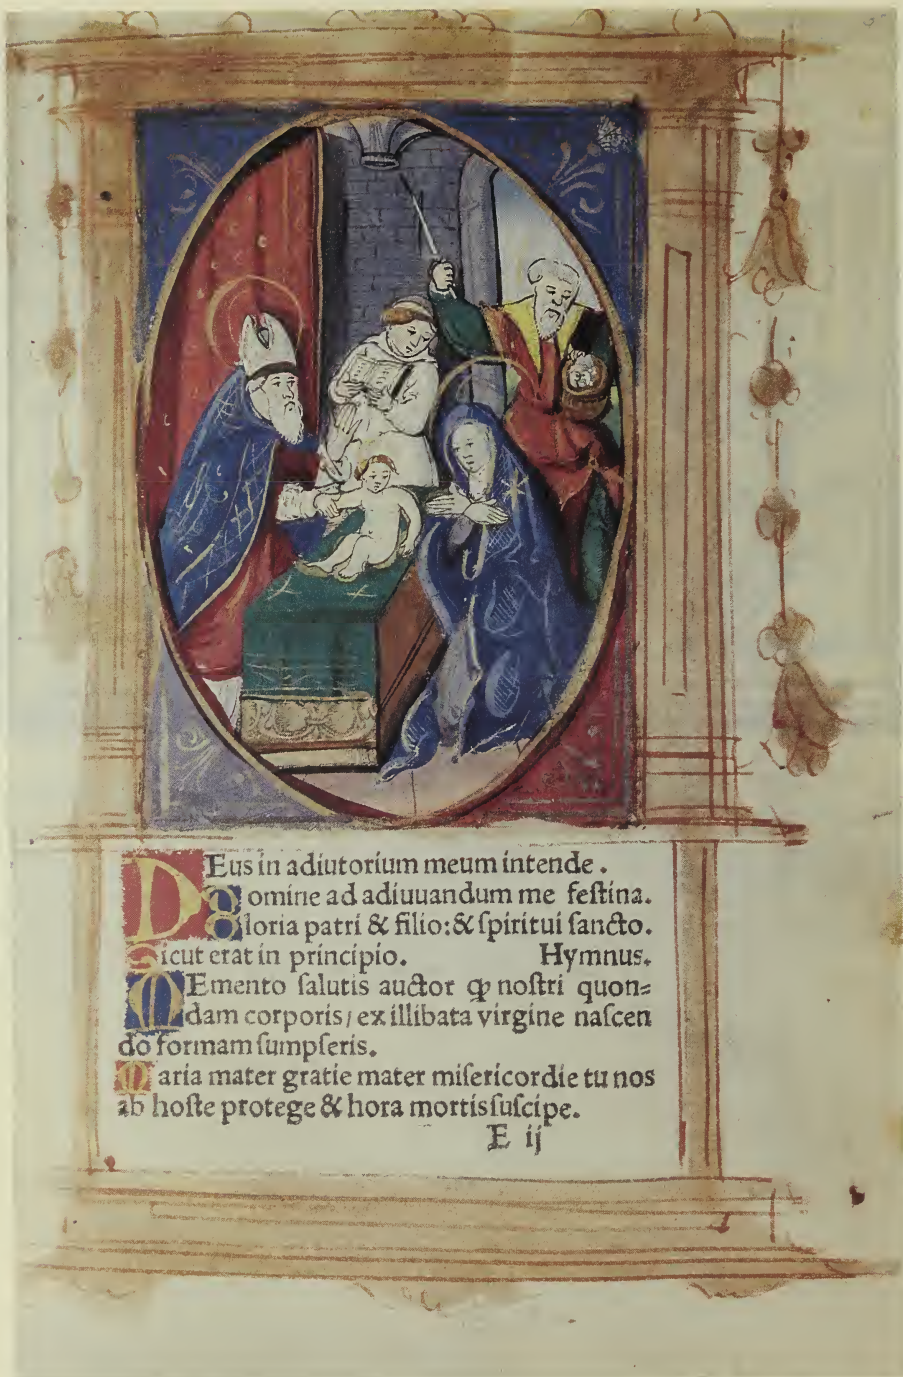 DEus in adiutorium meum intende.
Domine ad adiuuandum me feſtina.
Gloria patri & filio:& ſpiritui ſancto.
Sicut erat in principio. Hymnus.
MEmento ſalutis auctor ꝙ noſtri quon=
dam corporis/ ex illibata virgine naſcen
do formam ſumpſeris.
Maria mater gratie mater miſericordie tu nos
ab hoſte protege & hora mortis ſuſcipe.
E ij